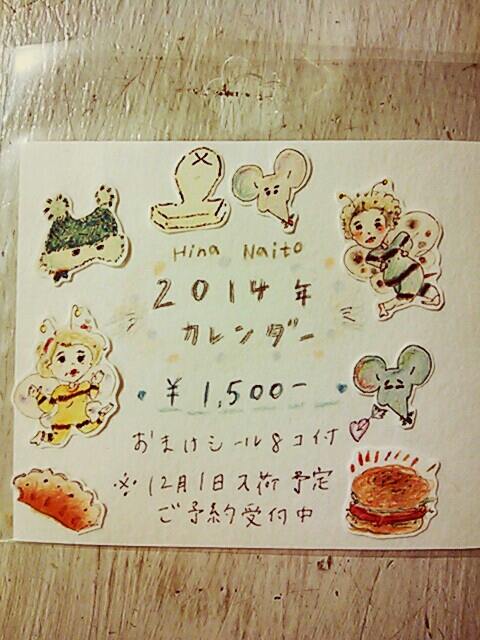 Hina Naito
2014年
カレンダー
¥1,500-
おまけシール8コ付
※12月1日入荷予定
ご予約受付中